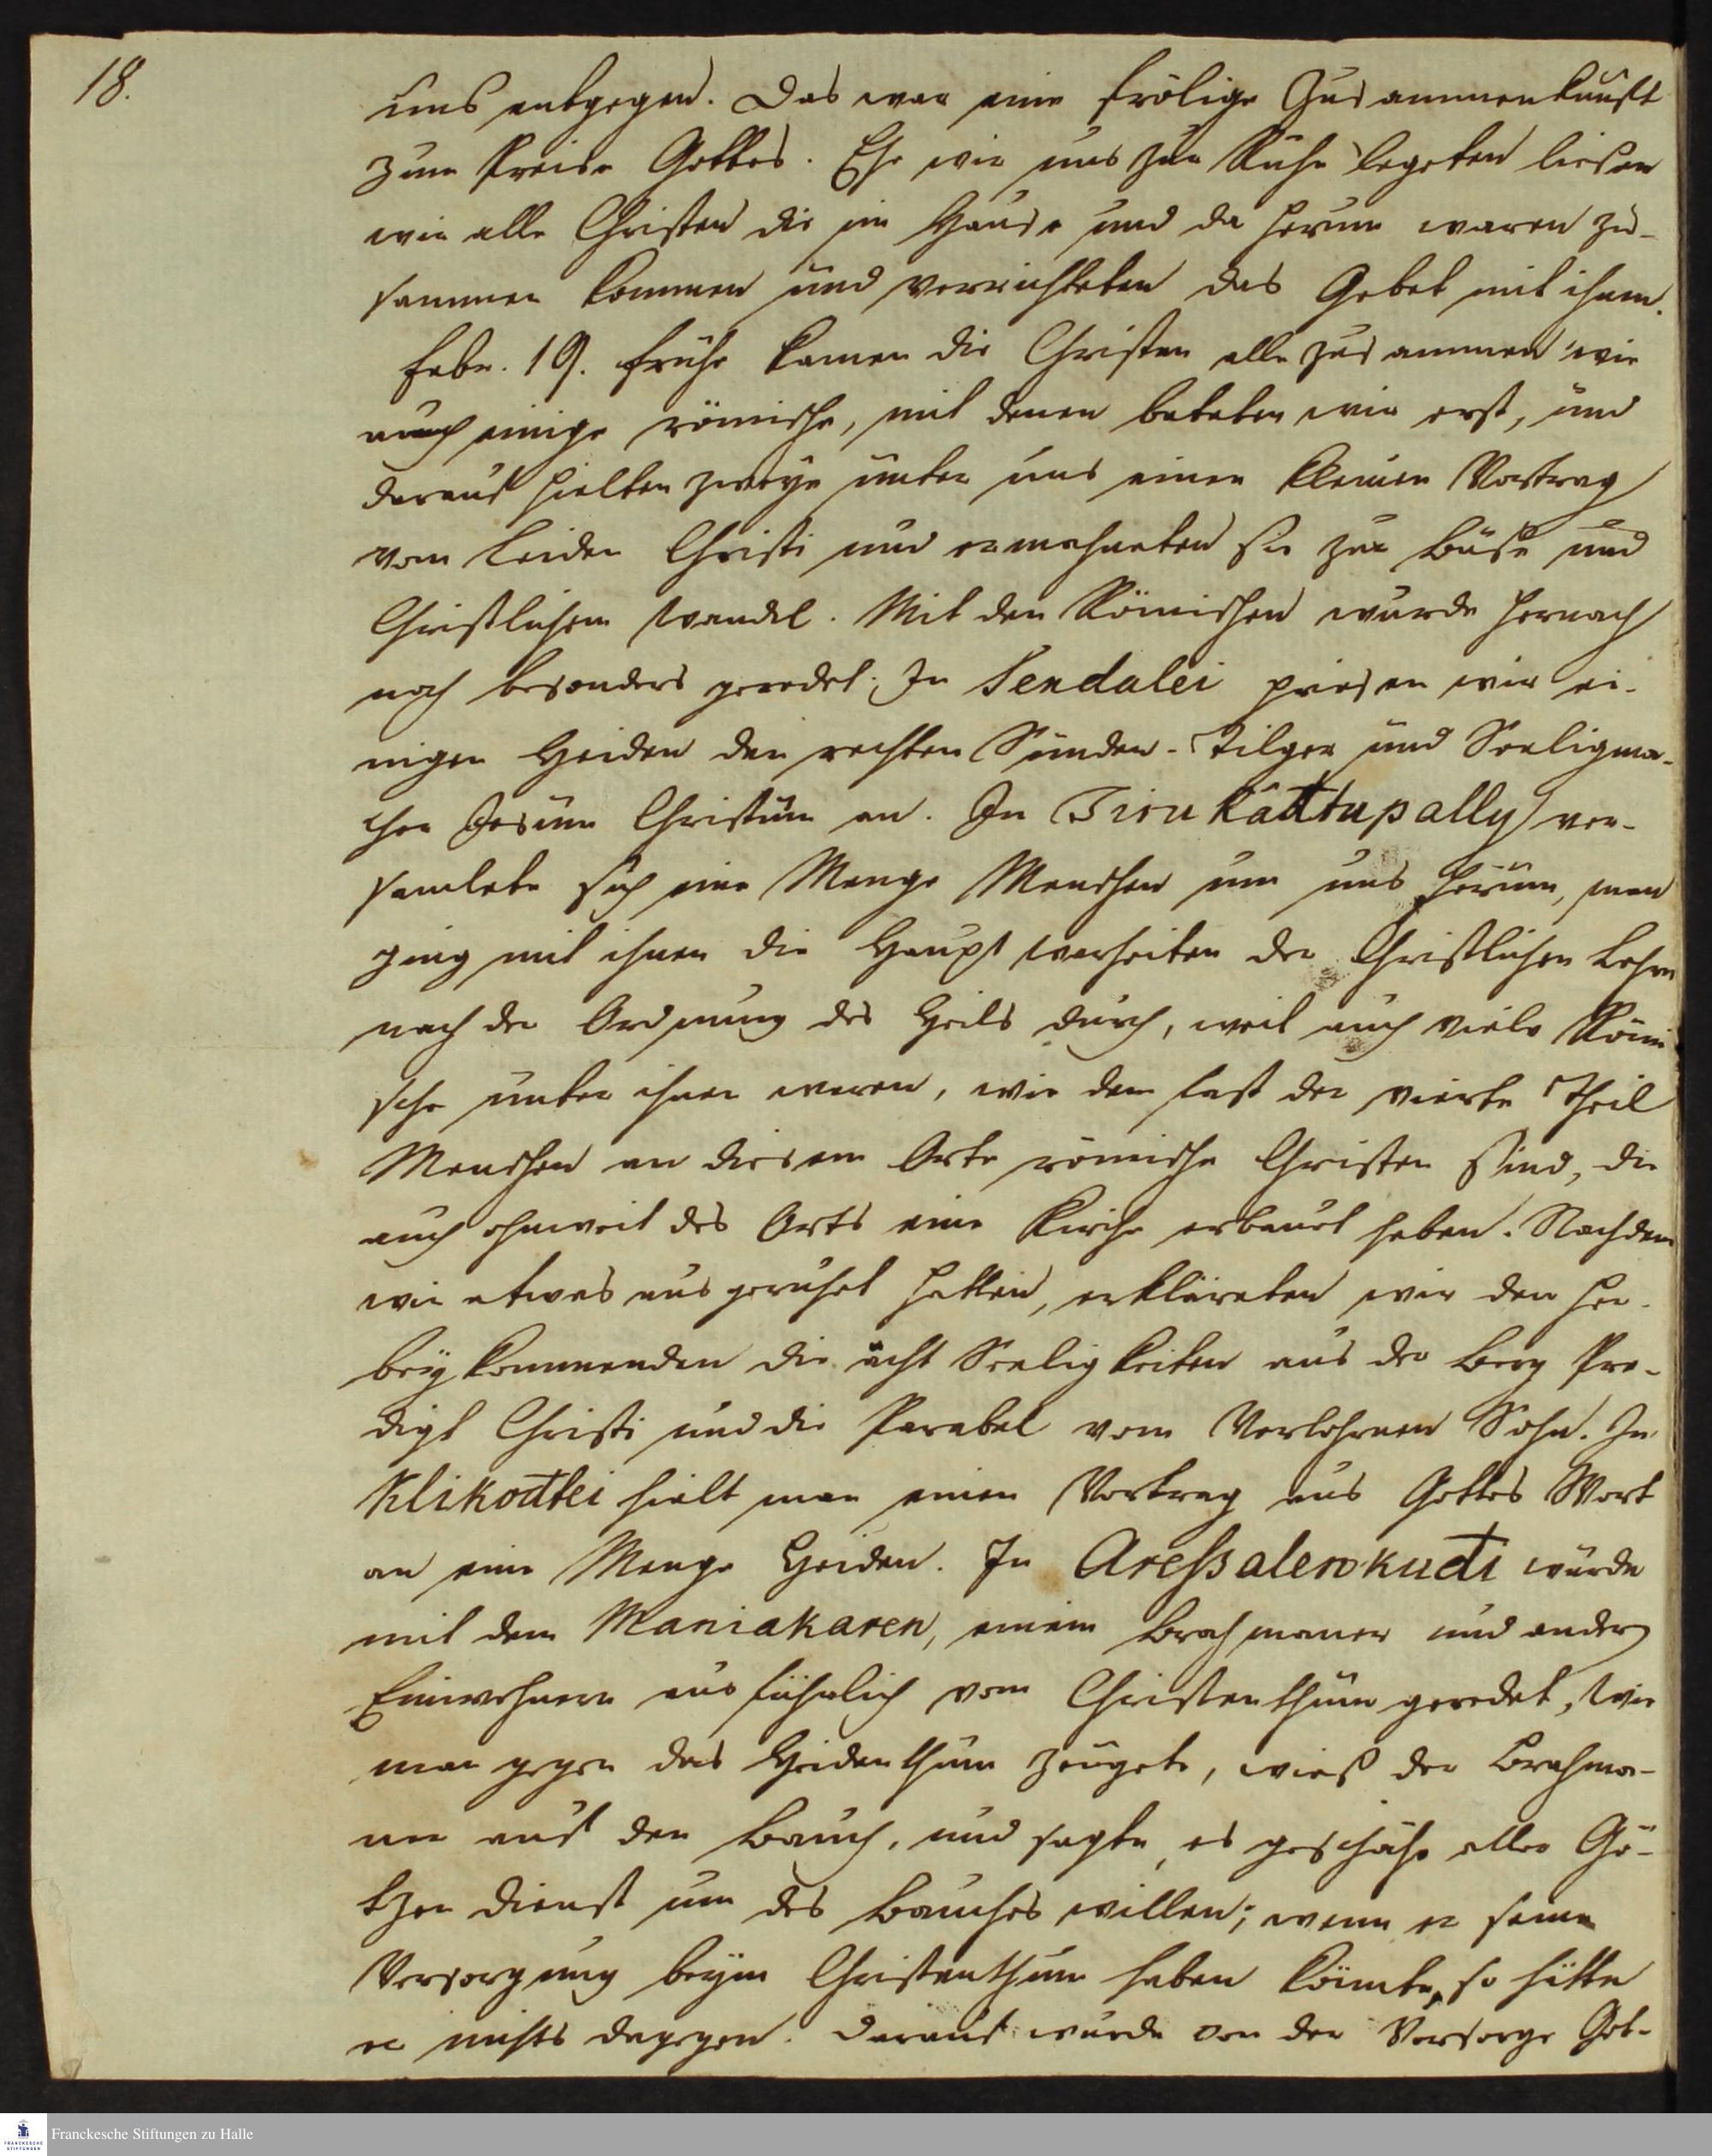 18.
uns entgegen. Das war eine frölige Zusammenkunft
zum Preise Gottes. Ehe wir uns zur Ruhe legeten liesen
wir alle Christen die im Hause und da herum waren zu-
sammen kommen und verrichteten das Gebet mit ihnen.
Febr. 19. frühe kamen die Christen alle zusammen wie
auch einige römische, mit denen beteten wir erst, und
darauf hielten zweye unter uns einen kleinen Vortrag
vom Leiden Christi und ermahneten sie zur Buße und
Christlichem Wandel. Mit den Römischen wurde hernach
noch besonders geredet. In Sendalei priesen wir ei-
nigen Heiden den rechten Sünden-Tilger und Seeligma-
cher Jesum Christum an. In Tirukâttupally ver-
samlete sich eine Menge Menschen um uns herum, man
ging mit ihnen die Haupt warheiten der Christlichen Lehre
nach der Ordnung des Heils durch, weil auch viele Römi
sche unter ihnen waren, wie denn fast der vierte Theil
Menschen an diesem Orte römische Christen sind, die
auch ohnweit des Orts eine Kirche erbauet haben. Nachdem
wir etwas ausgeruhet hatten, erkläreten wir den her-
beykommenden die acht Seeligkeiten aus der Berg Pre-
digt Christi und die Parabel vom Verlohrnen Sohn. In
Klikottei hielt man einen Vortrag aus Gottes Wort
an eine Menge Heiden. In Areßalenkudi wurde
mit dem Maniakaren, einem Brahmaner und andern
Einwohnern ausführlich vom Christenthum geredet, Wie
man gegen das Heidenthum zeugete, wieß der Brahma-
ner auf den Bauch, und sagte, es geschähe aller Gö-
tzen dienst um des Bauches willen; wenn er seine
Versorgung beym Christenthum haben könnte, so hätte
er nichts dagegen. Darauf wurde von der Vorsorge Got-
Franckesche Stiftungen zu Halle